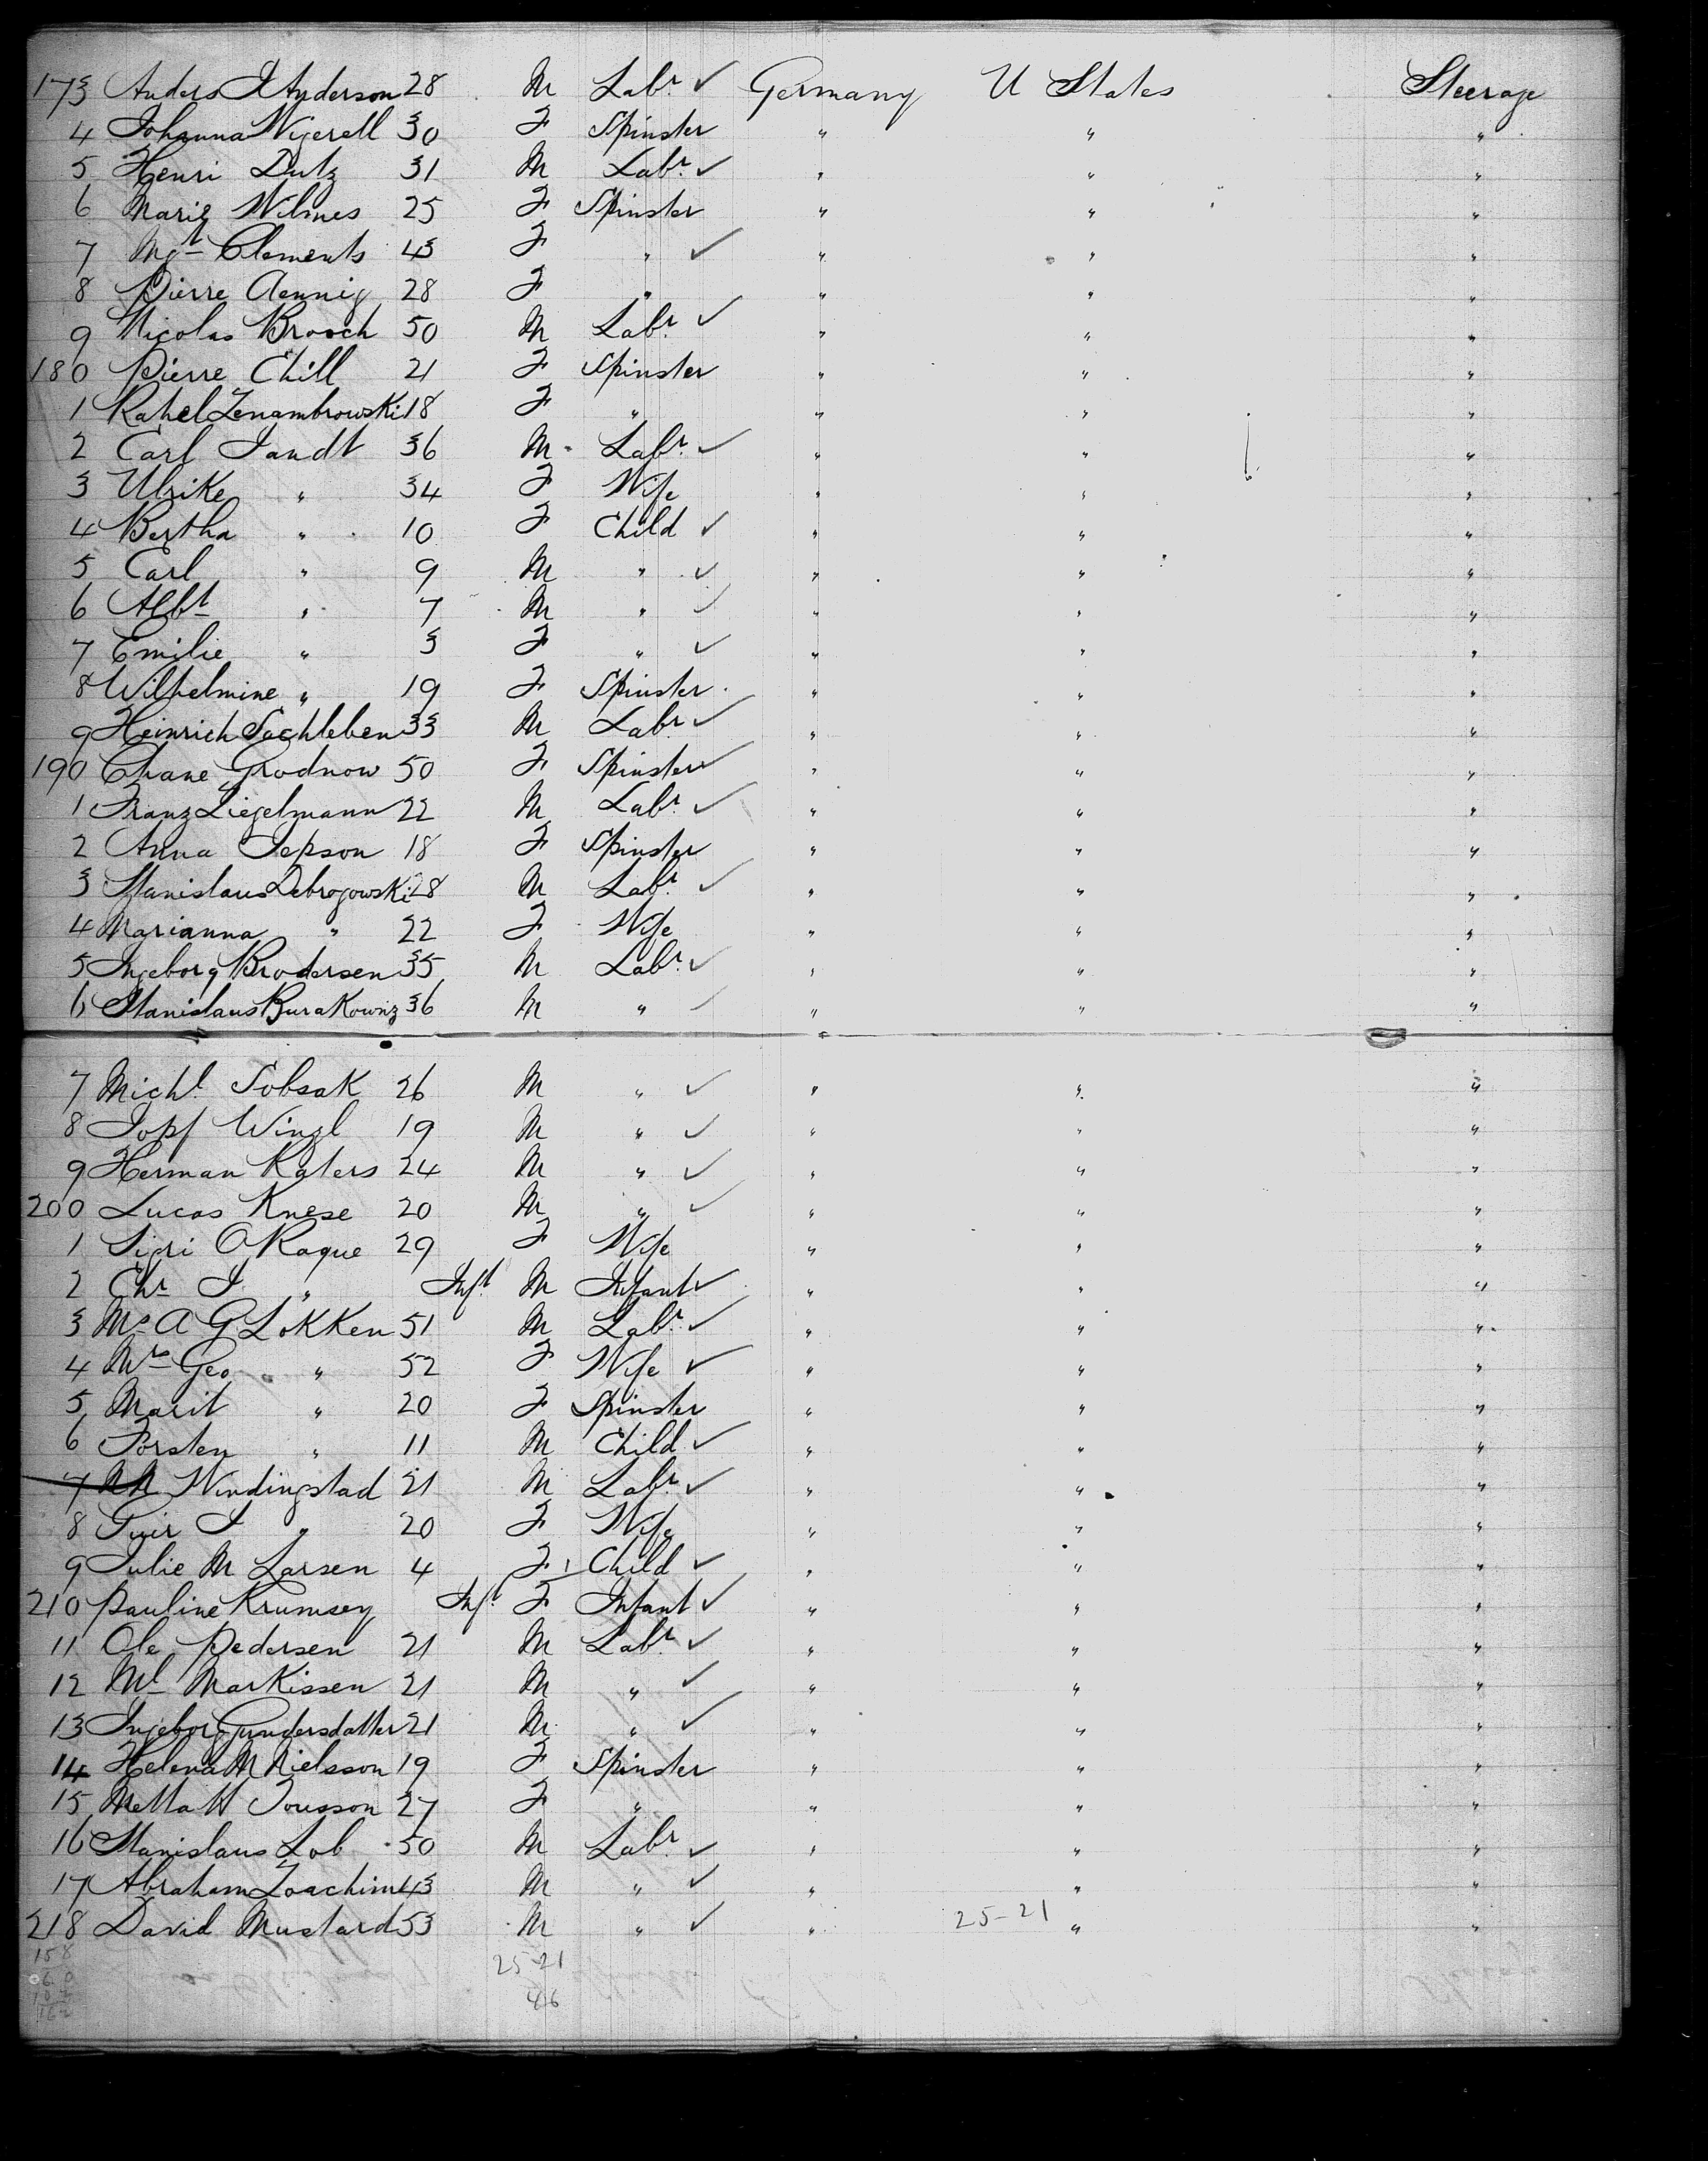 173 Anders I Anderson 28 M Labr ✓ Germany U States Steerage
4 Johanna Nigerell 30 F Spinster " " "
5 Henri Dutz 31 M Labr ✓ " " "
6 Marie Wilmes 25 F Spinster " " "
7 Mgt Clements 43 F " ✓ " " "
8 Pierre Aennig 28 F " " " "
9 Nicolas Brosch 50 M Labr ✓ " " "
180 Pierre Chill 21 F Spinster " " "
1 Rahel Zenambrowski 18 F " " " "
2 Carl Jandt 36 M Labr ✓ " " "
3 Ulrike " 34 F Wife " " "
4 Bertha " 10 F Child ✓ " " "
5 Carl " 9 M " ✓ " " "
6 Albt " 7 M " ✓ " " "
7 Emilie " 3 F " ✓ " " "
8 Wilhelmine " 19 F Spinster " " "
9 Heinrich Sachleben 33 M Labr ✓ " " "
190 Chane Grodnow 50 F Spinster ✓ " " "
1 Franz Liegelmann 22 M Labr ✓ " " "
2 Anna Jepson 18 F Spinster " " "
3 Stanislaus Debrogowski 28 M Labr ✓ " " "
4 Marianna " 22 F Wife " " "
5 Ingeborg Brodersen 35 M Labr ✓ " " "
6 Stanislaus Burakownz 36 M " ✓ " " "
7 Michl Sobsak 26 M " ✓ " " "
8 Jopf Winzl 19 M " ✓ " " "
9 Herman Katers 24 M " ✓ " " "
200 Lucas Knese 20 M " ✓ " " "
1 Sigri O Raque 29 F Wife " " "
2 Chr I " Inft M Infant ✓ " " "
3 Mr A G Lokken 51 M Labr ✓ " " "
4 Mrs Geo " 52 F Wife ✓ " " "
5 Marit " 20 F Spinster " " "
6 Torsten " 11 M Child ✓ " " "
7 Windingstad 21 M Labr ✓ " " "
8 I " 20 F Wife " " "
9 Julie M Larsen 4 F Child ✓ " " "
210 Pauline Krumsey Inft F Infant ✓ " " "
11 Ole Pedersen 21 M Labr ✓ " " "
12 Ml Markissen 21 M " ✓ " " "
13 Ingeborg Gundersdatter 21 M " ✓ " " "
14 Helena M Nielsson 19 F Spinster " " "
15 Metta H Tousson 27 F " " " "
16 Stanislaus Lob 50 M Labr ✓ " " "
17 Abraham Joachim 43 M " ✓ " " "
218 David Mustard 53 M " ✓ " 25-21 " "
158 25-21
60 46
162